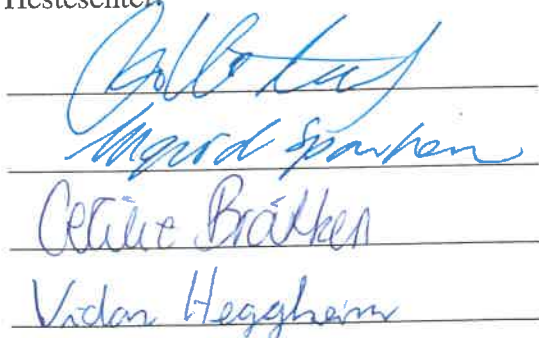 Hestesenter
Ingrid Sparken
Cecilie Bråtken
Vidar Heggheim